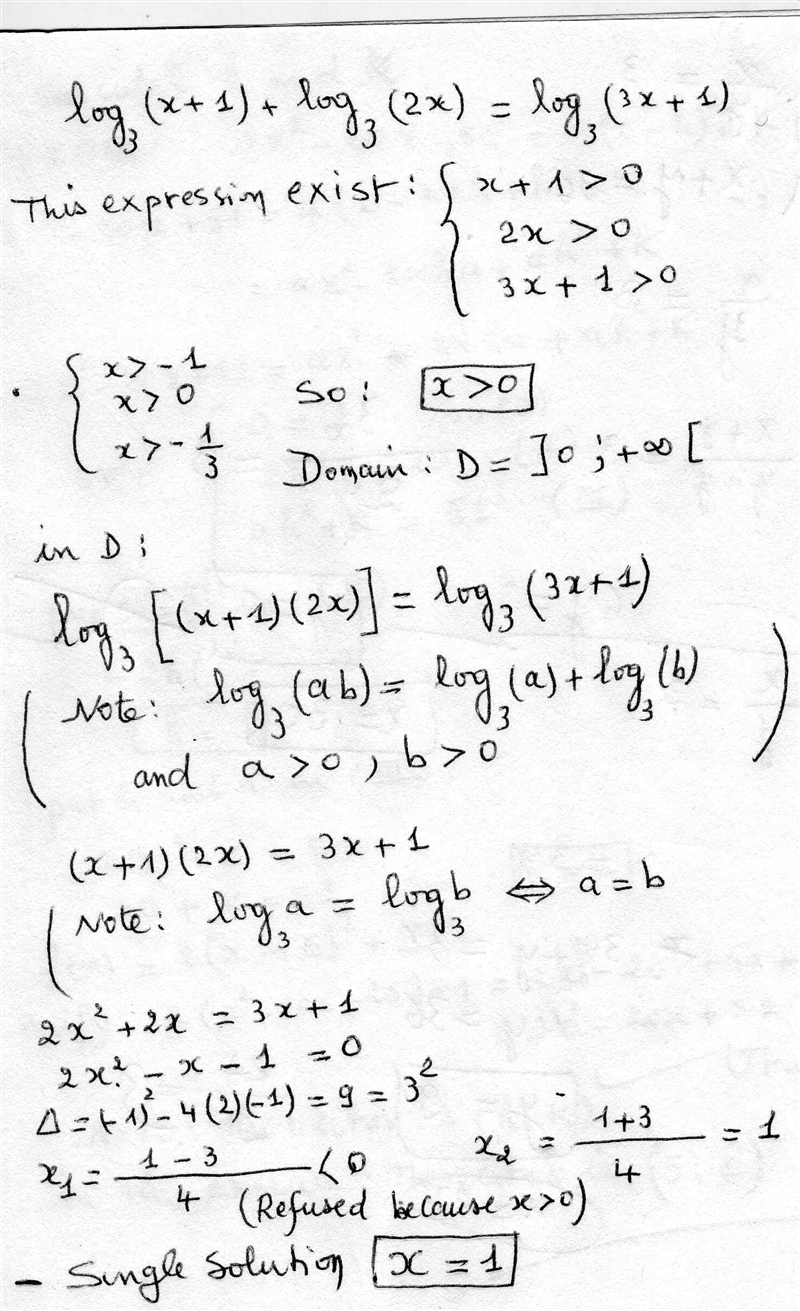 log₃(x+1) + log₃(2x) = log₃(3x+1)
This expression exist: { x+1>0
2x>0
3x+1>0
. { x>-1
x>0 So: x>0
x>-1/3 Domain: D = ]0;+∞[
in D:
log₃[(x+1)(2x)] = log₃(3x+1)
(Note: log₃(ab) = log₃(a)+log₃(b)
and a>0, b>0 )
(x+1)(2x) = 3x+1
(Note: log₃a = log₃b ⇔ a=b
2x²+2x = 3x+1
2x² - x - 1 = 0
Δ=(-1)²-4(2)(-1)=9=3²
x₁ = (1-3)/4 <0 x₂ = (1+3)/4 = 1
(Refused because x>0)
- Single solution x=1